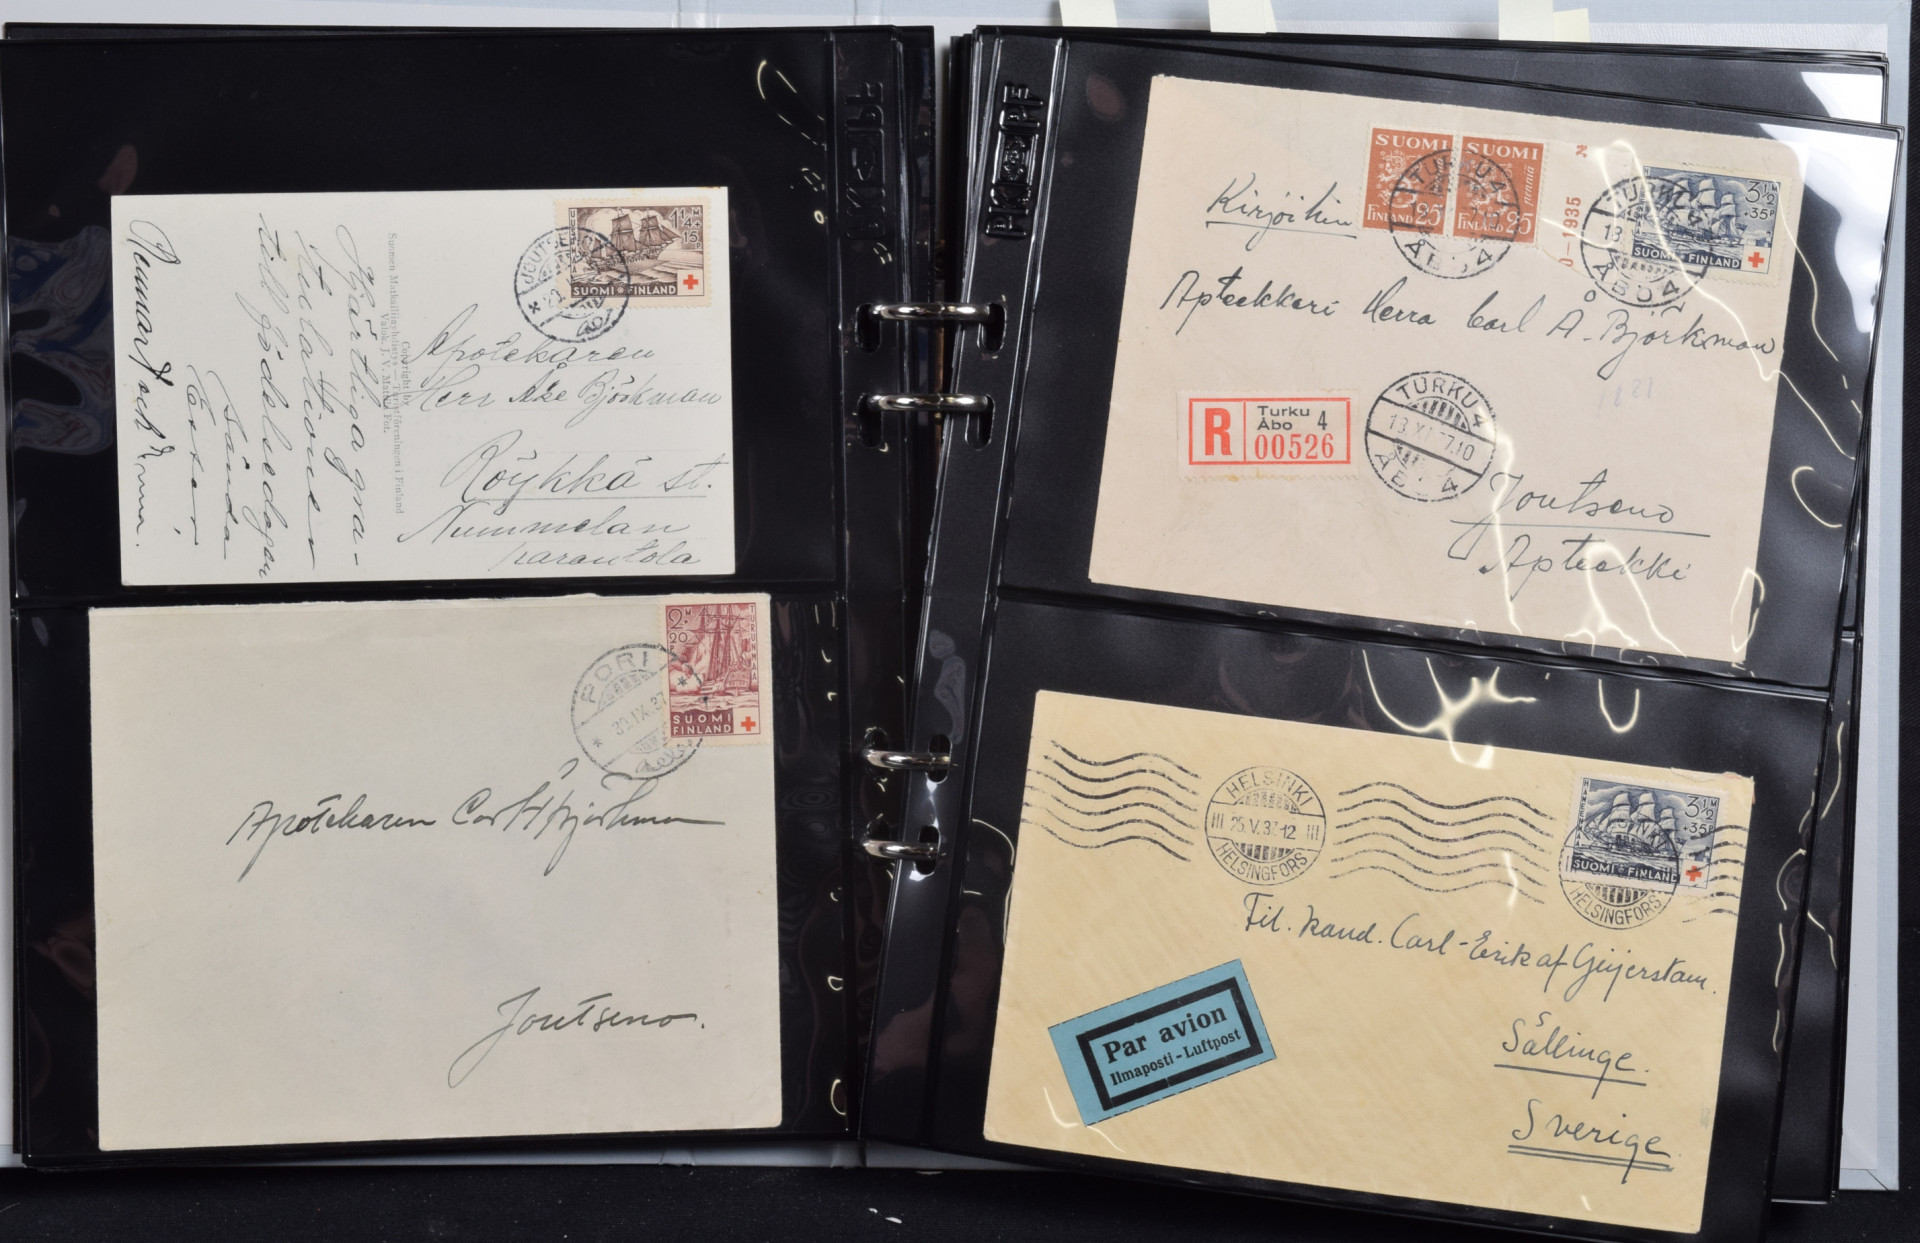 Hjärtliga gra-
tulationer
till födelsedagen
sända
Suomen Matkailijayhdistys — Turistföreningen i Finland
Copyright by
Valok. J. V. Mattila Fot.
1 1/4 M + 15 P
SUOMI FINLAND
JOUTSENO
Apotekaren
Herr Åke Björkman
Röykkä st.
Nummelan
2 M + 20 P
TURUNMAA
SUOMI
FINLAND
PORI
30.IX.37
Apotekaren Carl Å Björkman
Joutseno.
SUOMI
FINLAND 25
SUOMI
PENNIÄ
FINLAND 25
1935
3 1/2 M
+35P
SUOMI FINLAND
TURKU 4
ÅBO 4
TURKU 4
ÅBO 4
Kirjöihin
Apteekkari Herra Carl Å. Björkman
R Turku 4
Åbo
00526
TURKU 4
18.XI.37.10
ÅBO 4
Joutseno
Apteekki
HELSINKI
25.V.37-12
HELSINGFORS
3 1/2 M
+35P
SUOMI FINLAND
HELSINGFORS
Fil. kand. Carl-Erik af Geijerstam.
Sällinge.
Sverige
Par avion
Ilmaposti - Luftpost